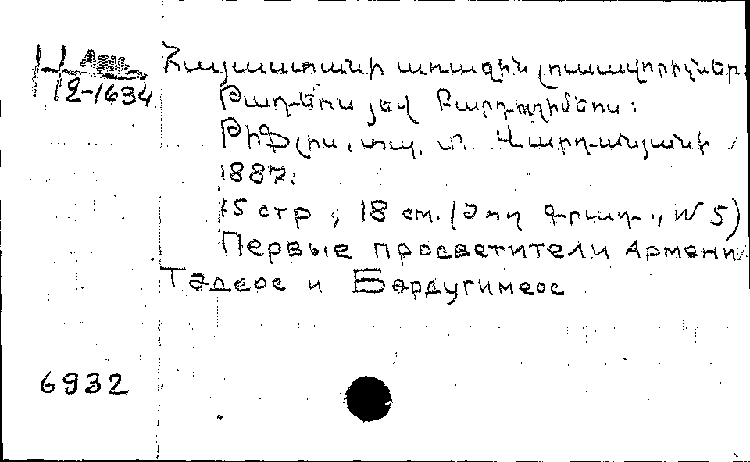 Հայաստանի առաջին լուսավորիչներ
2-1634
Թադեոս յեվ Բարդուղիմեոս:
Թիֆլիս, տպ. Վարդանյանի,
1887.
15 стр., 18 см. (Ժող. գրադ., № 5)
Первые просветители Армени
Тадеос и Бардугимеос
6932